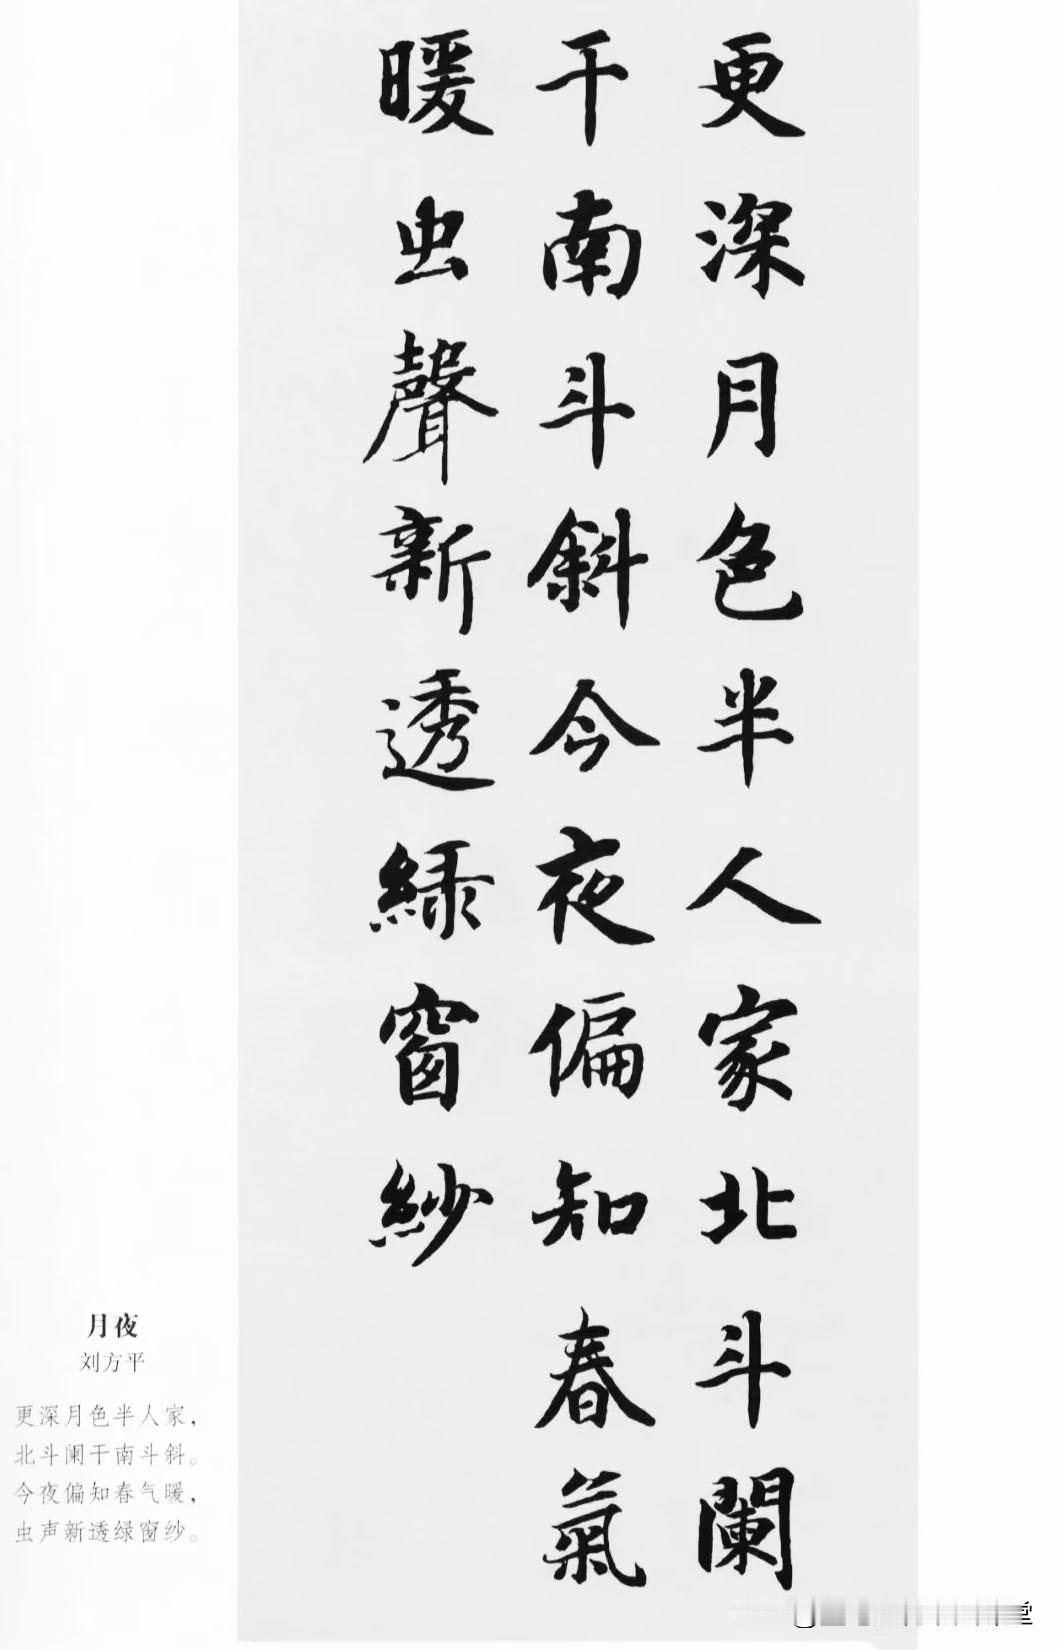 更深月色半人家北斗闌
干南斗斜今夜偏知春氣
暖虫聲新透綠窗紗
月夜
刘方平
更深月色半人家，
北斗阑干南斗斜。
今夜偏知春气暖，
虫声新透绿窗纱。